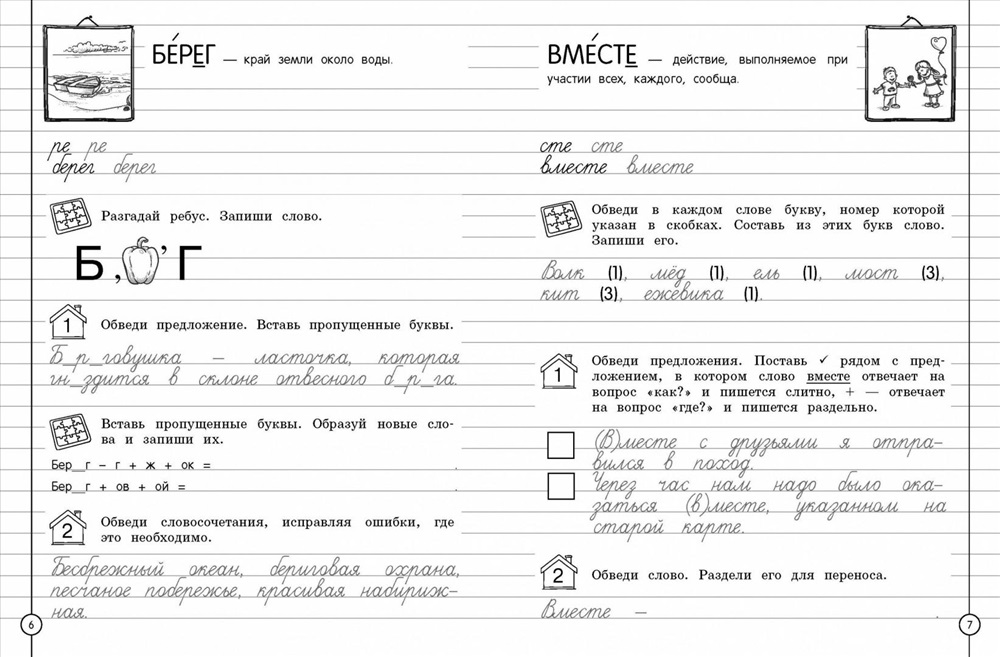 БЕ́РЕГ — край земли около воды.
ре ре
берег берег
Разгадай ребус. Запиши слово.
Б , ’ Г
1 Обведи предложение. Вставь пропущенные буквы.
Б_р_говушка — ласточка, которая
гн_здится в склоне отвесного б_р_га.
Вставь пропущенные буквы. Образуй новые сло-
ва и запиши их.
Бер_г – г + ж + ок = .
Бер_г + ов + ой = .
2 Обведи словосочетания, исправляя ошибки, где
это необходимо.
Бесбрежный океан, бериговая охрана,
песчаное побережье, красивая набириж-
ная.
6
ВМЕ́СТЕ — действие, выполняемое при
участии всех, каждого, сообща.
сте сте
вместе вместе
Обведи в каждом слове букву, номер которой
указан в скобках. Составь из этих букв слово.
Запиши его.
Волк (1), мёд (1), ель (1), мост (3),
кит (3), ежевика (1).
1 Обведи предложения. Поставь ✓ рядом с пред-
ложением, в котором слово вместе отвечает на
вопрос «как?» и пишется слитно, + — отвечает
на вопрос «где?» и пишется раздельно.
(В)месте с друзьями я отпра-
вился в поход.
Через час нам надо было ока-
заться (в)месте, указанном на
старой карте.
2 Обведи слово. Раздели его для переноса.
Вместе — .
7